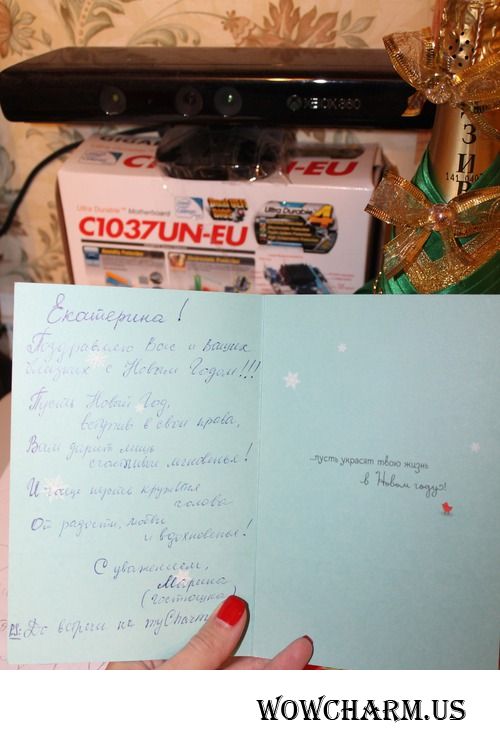 XBOX 360
C1037UN-EU
-EU
Ultra Durable™ Motherboard
C1037UN-EU
Ultra Durable 4
141 040
ЗИВ
Екатерина!
Поздравляю Вас и Ваших
близких с Новым Годом!!!
Пусть Новый Год,
вступив в свои права,
Вам дарит лишь
счастливые мгновенья!
И чаще пусть кружится
голова
От радости, любви
и вдохновенья!
С уважением,
Марина
(гостюшка)
PS: До встречи на myCharm
...пусть украсят твою жизнь
в Новом году!
WOWCHARM.US